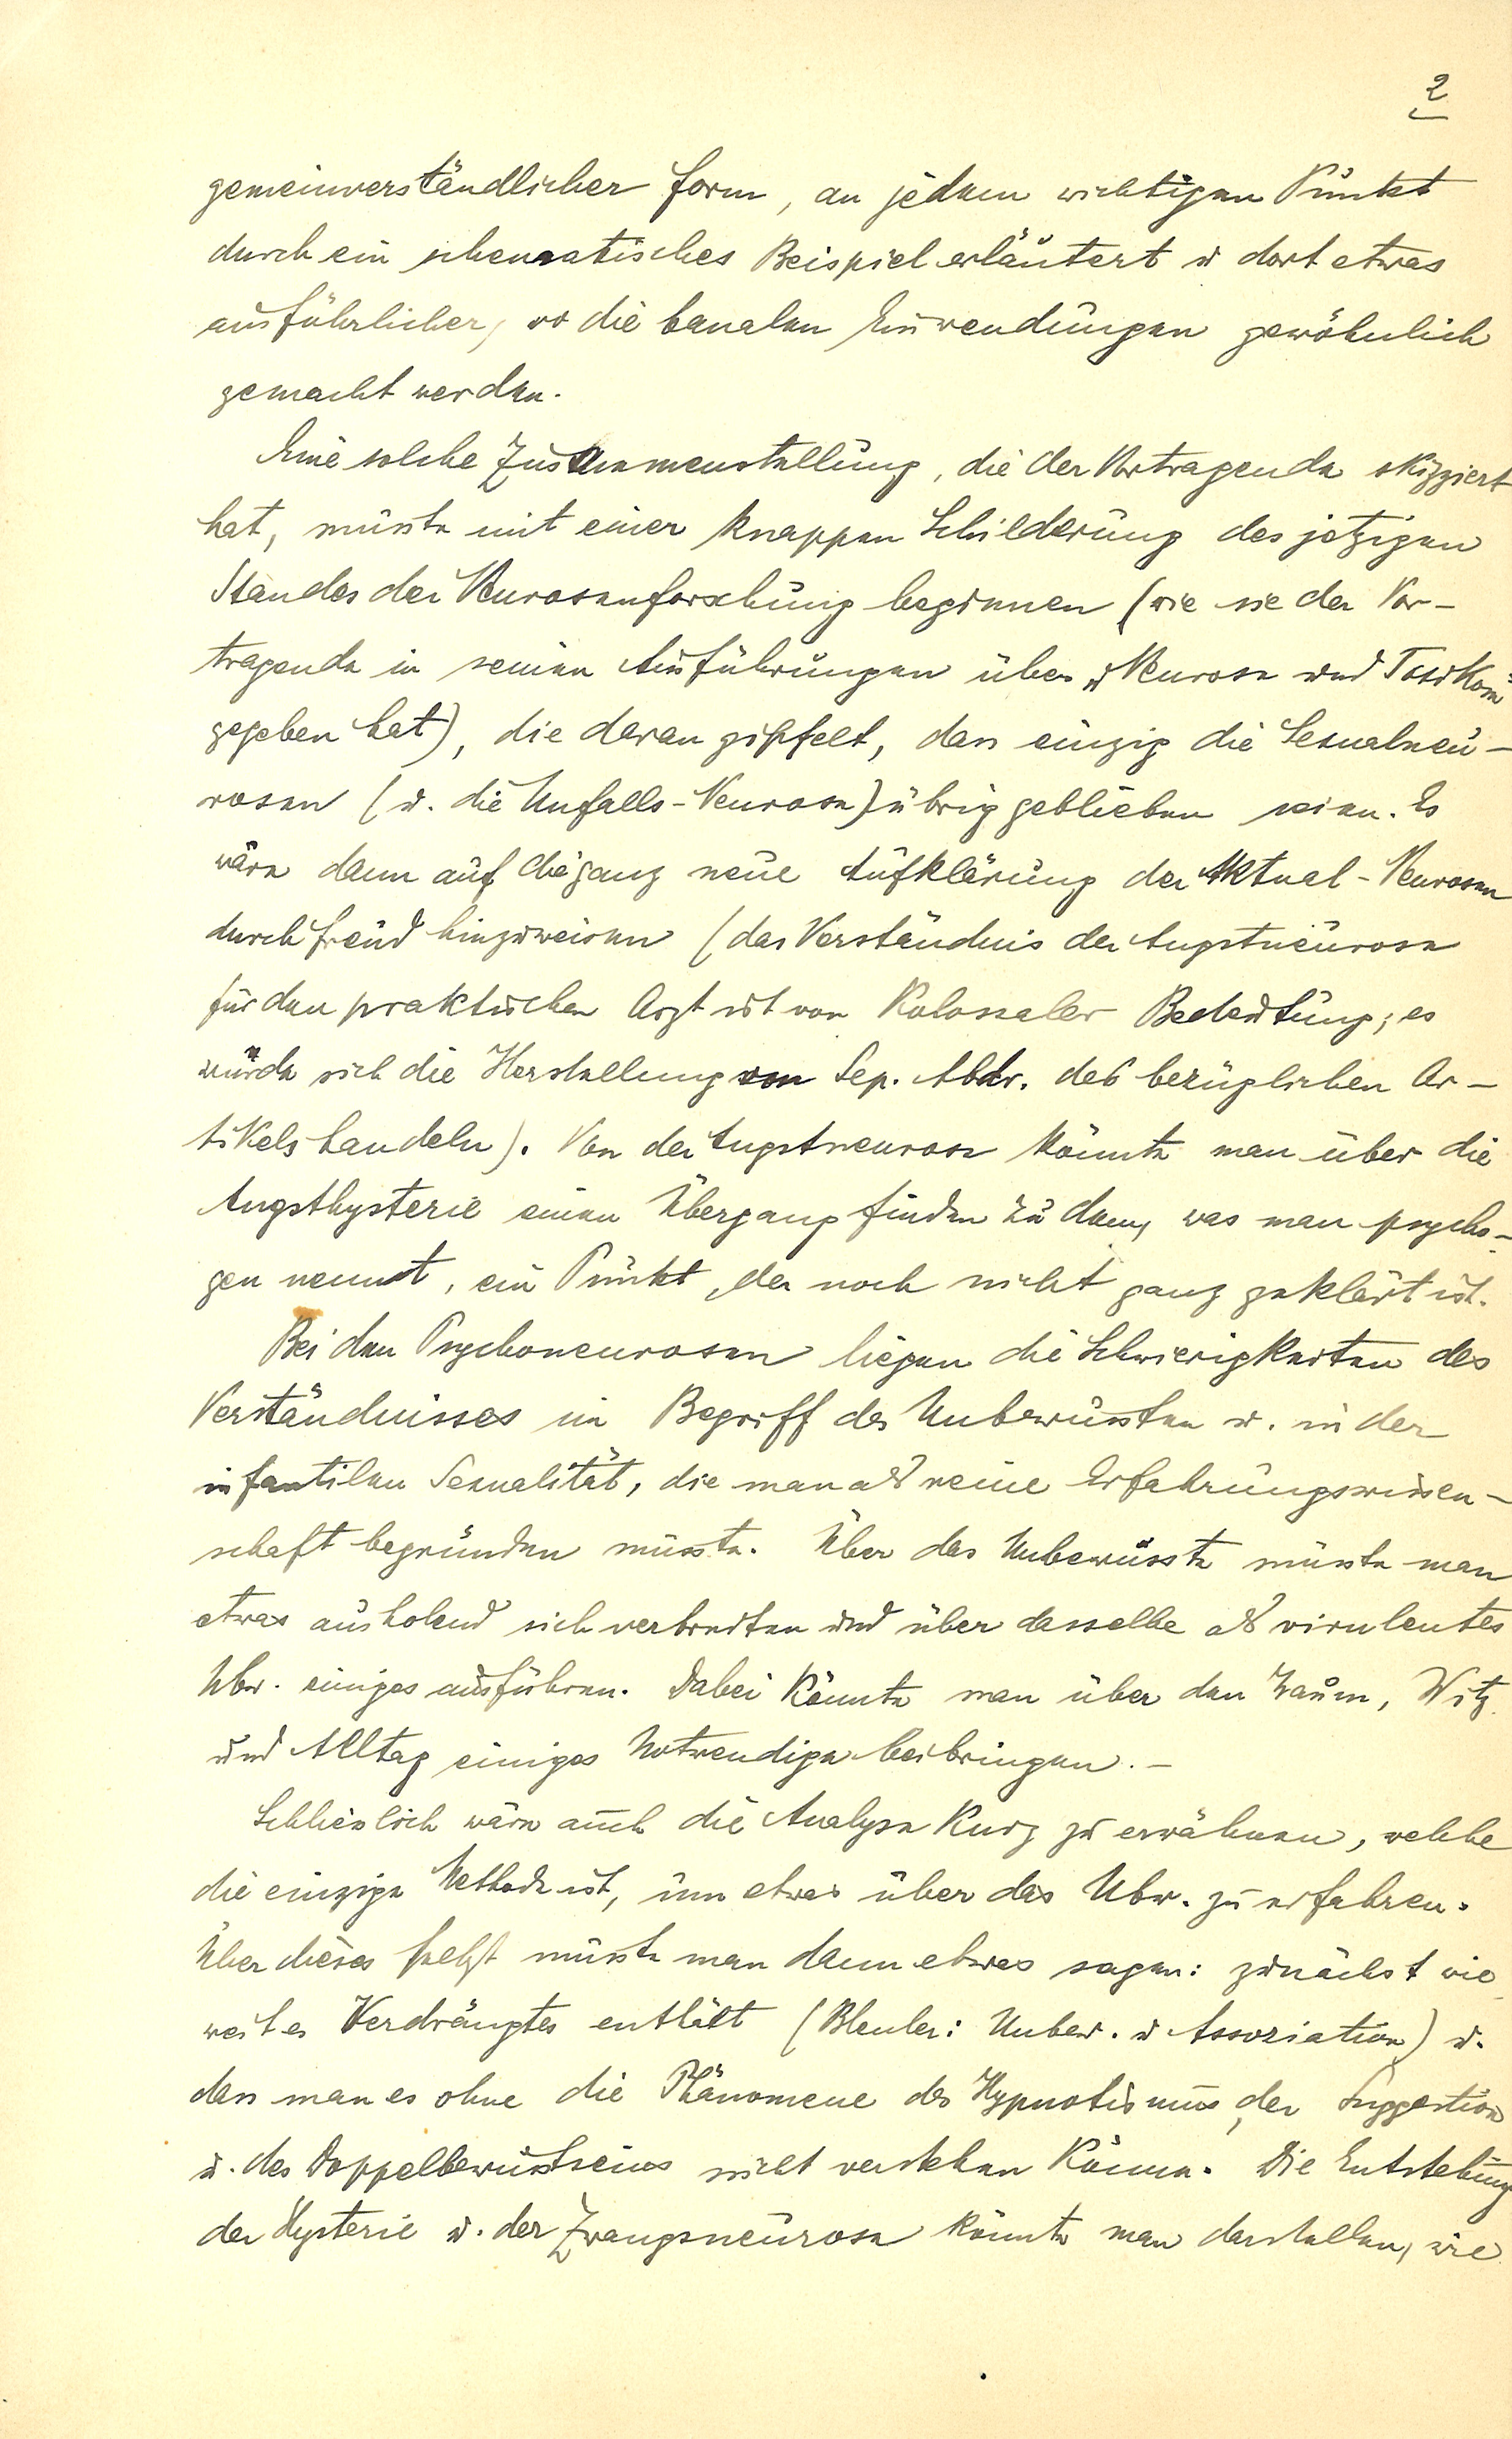 2
gemeinverständlicher Form, an jedem wichtigen Punkt
durch ein schematisches Beispiel erläutert u dort etwas
ausführlicher, wo die banalen Einwendungen gewöhnlich
gemacht werden.
Eine solche Zusammenstellung, die der Vortragende skizziert
hat, müsste mit einer knappen Schilderung des jetzigen
Standes der Neurosenforschung beginnen (wie sie der Vor-
tragende in seinen Ausführungen über „Neurose und Toxikom"
gegeben hat), die daran gipfelt, dass einzig die Sexualneu-
rosen (u. die Unfalls-Neurose) übrig geblieben seien. Es
wäre dann auf die ganz neue Aufklärung der Aktual-Neurosen
durch Freud hinzuweisen (das Verständnis der Angstneurose
für den praktischen Arzt ist von kolossaler Bedeutung; es
würde sich die Herstellung von Sep. Abdr. des bezüglichen Ar-
tikels handeln). Von der Angstneurose könnte man über die
Angsthysterie einen Übergang finden zu dem, was man psycho-
gen nennt, ein Punkt, der noch nicht ganz geklärt ist.
Bei den Psychoneurosen liegen die Schwierigkeiten des
Verständnisses im Begriff des Unbewussten u. in der
infantilen Sexualität, die man als reine Erfahrungswissen-
schaft begründen müsste. Über das Unbewusste müsste man
etwas ausholend sich verbreiten und über dasselbe als virulentes
Ubw. einiges ausführen. Dabei könnte man über den Traum, Witz
und Alltag einiges Notwendige beibringen. -
Schliesslich wäre auch die Analyse kurz zu erwähnen, welche
die einzige Methode ist, um etwas über das Ubw. zu erfahren.
Über dieses selbst müsste man dann etwas sagen: zunächst wie
weit es Verdrängtes enthält (Bleuler: Unbew. u Assoziation) u.
dass man es ohne die Phänomene des Hypnotismus, der Suggestion
u. des Doppelbewusstseins nicht verstehen könne. Die Entstehung
der Hysterie u. der Zwangsneurose könnte man darstellen, wie